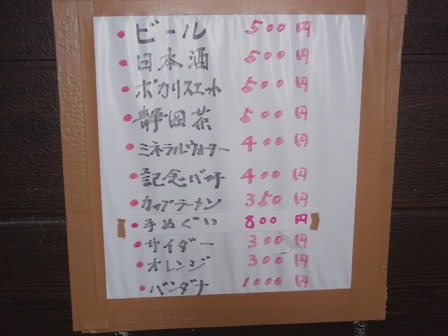 ・ビール 500円
・日本酒 500円
・ポカリスエット 500円
・静岡茶 500円
・ミネラルウォーター 400円
・記念バッチ 400円
・カップラーメン 350円
・手ぬぐい 800円
・サイダー 300円
・オレンジ 300円
・バンダナ 1000円